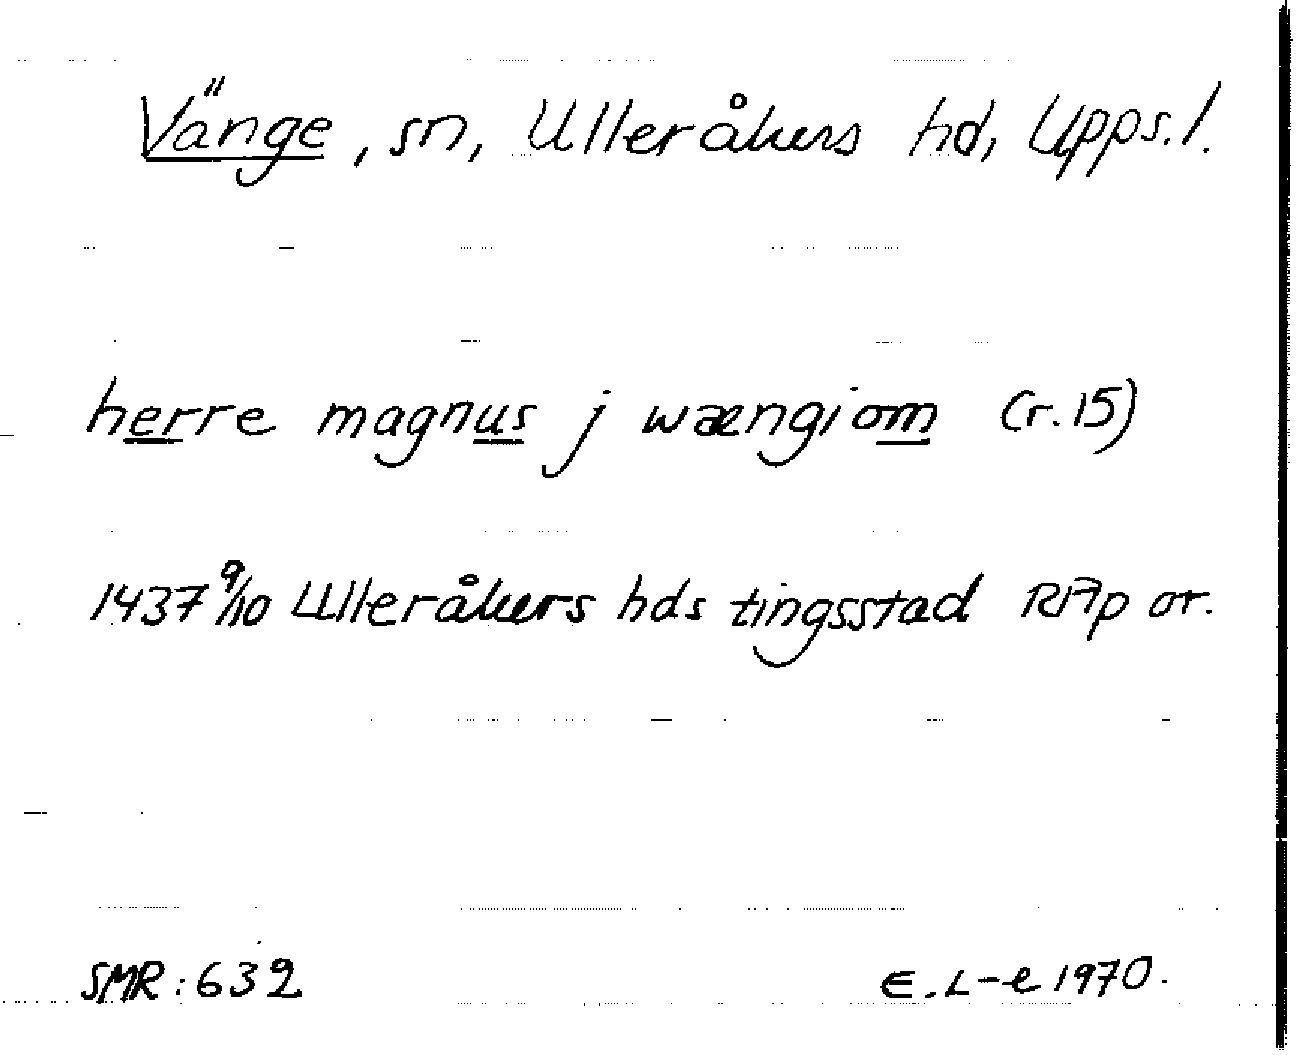 Vänge, sn, Ulleråkers hd, Upps. l.
herre magnus j wængiom (r. 15)
1437 9/10 Ulleråkers hds tingsstad RAp or.
SMR: 632 E. L-e 1970.